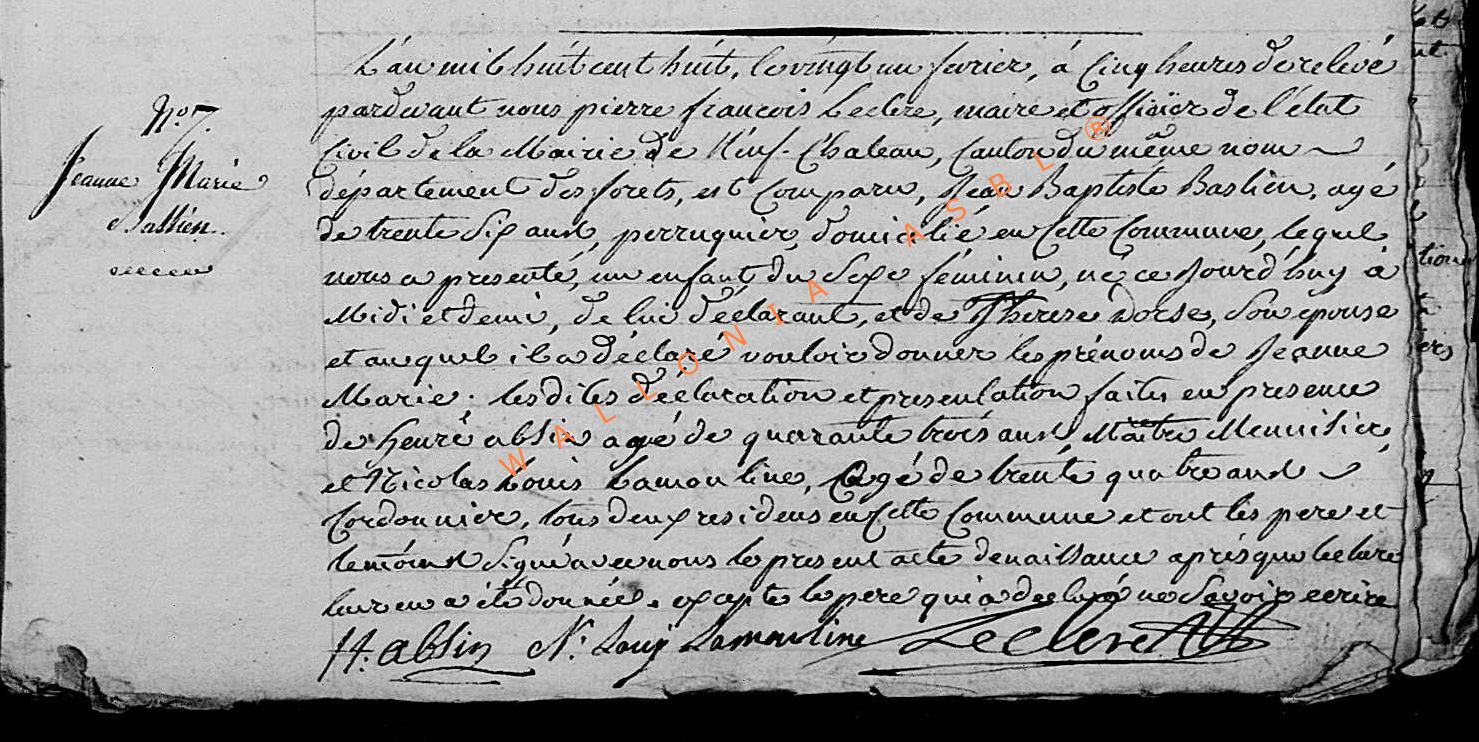 N.o 7.
Jeanne Marie
Bastien.
L'an mil huit cent huit, le vingt un fevrier, à Cinq heures de relevé
pardevant nous pierre françois Leclere, maire et officier de l'état
Civil de la Mairie de Neuf-Chateau, Canton du même nom
département des forets, est Comparu, Jean Baptiste Bastien, agé
de trente Six ans, perruquier, domicilié en Cette Commune, lequel
nous a presenté, un enfant du Sexe féminin, né ce Jourd'huy à
Midi et demi, de lui déclarant, et de Therese Dorse, Son epouse
et auquel il a déclaré vouloir donner les prénoms de Jeanne
Marie. lesdites déclaration et presentation faites en presence
de henri absin agé de quarante trois ans Maitre Menuisier,
et Nicolas Louis Lamouline, agé de trente quatre ans
Cordonnier, tous deux residens en Cette Commune et ont les pere et
temoins Signé avec nous le present acte de naissance après que lecture
leur en a été donnée. excepte le pere qui a declaré ne Savoir ecrire
H. absin N. Louis Lamouline Leclere
WALLONIA ASBL ®